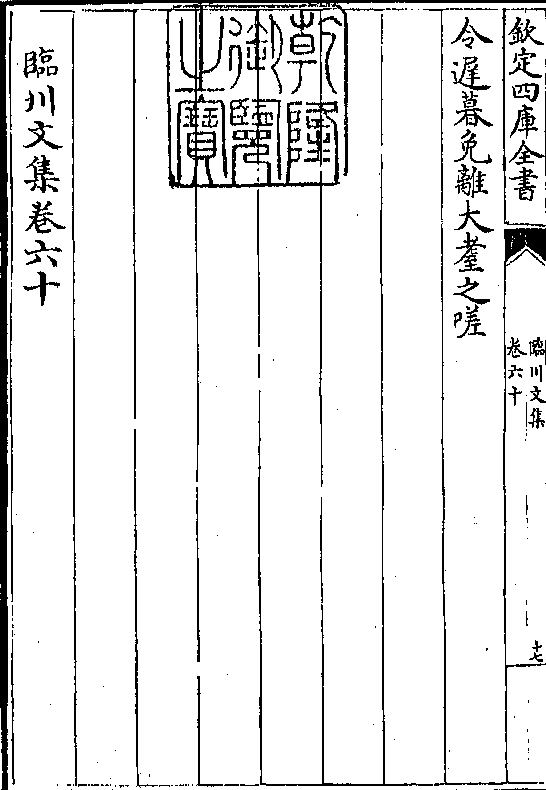 欽定四庫全書
臨川文集
卷六十
十七
令遲暮免離大耋之嗟
乾隆
御覽
之寶
臨川文集卷六十